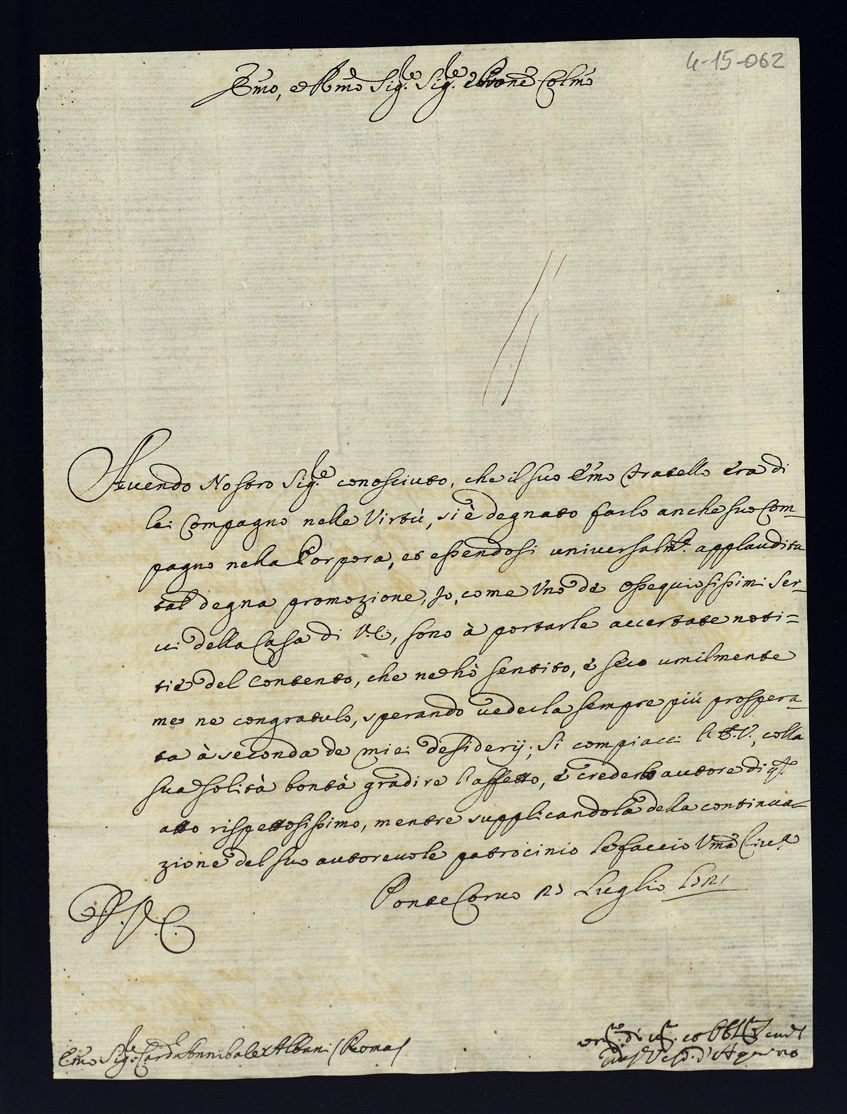 4-15-062
Emo, e Rmo Sig.re Sig.re e Prone Colmo
Avendo Nostro Sig.re conosciuto, che il suo Emo Fratello era di
lei Compagno nelle Virtù, si è degnato farlo anche suo Com-
pagno nella Porpora, et essendosi universalmte. applaudita
tal degna promozione, Io, come Uno de ossequiosissimi Ser-
vi della Casa di V.E., sono à portarle accertate noti=
tie del contento, che ne hò sentito, e seco umilmente
me ne congratulo, sperando vederla sempre più prospera-
ta à seconda de miei desiderij; Si compiacci l'E.V., colla
sua solità bontà gradire l'affetto, e crederlo autore di q.to
atto rispettosissimo, mentre supplicandola della continua-
zione del suo autorevole patrocinio le faccio Uma River.a
Ponte Corvo 23 Luglio 1721
D. V. E.
Emo Sig.re Card. Annibale Albani / Roma /
Vesc. d'Aquino